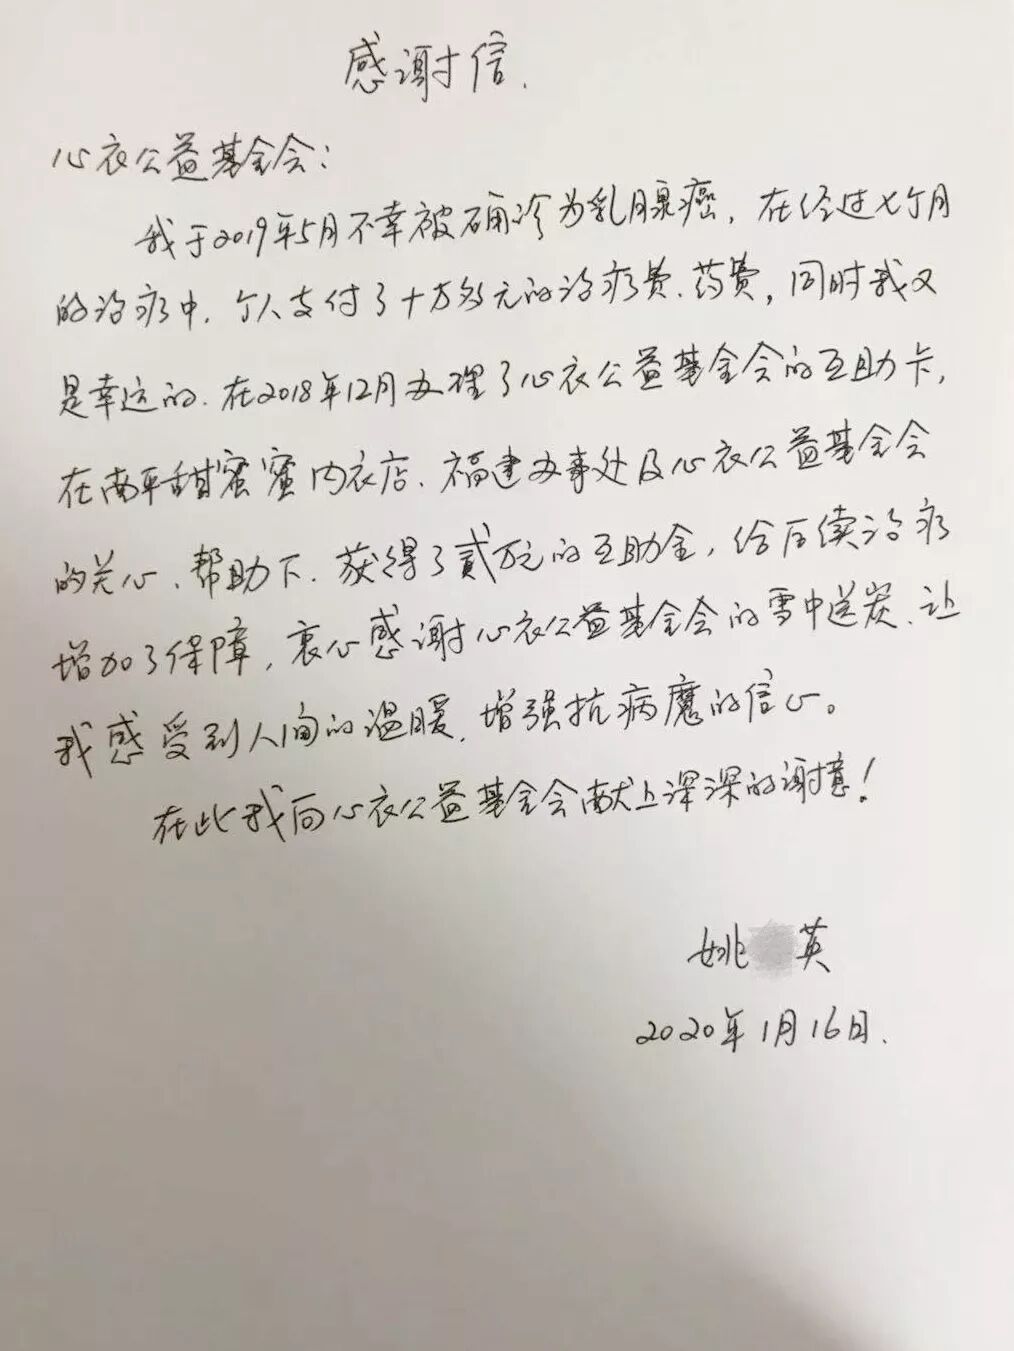 感谢信.
心衣公益基金会:
我于2019年5月不幸被确诊为乳腺癌，在经过七个月
的治疗中、个人支付了十万多元的治疗费、药费，同时我又
是幸运的、在2018年12月办理了心衣公益基金会的互助卡，
在南平甜蜜蜜内衣店、福建办事处及心衣公益基金会
的关心、帮助下、获得了贰万元的互助金，给后续治疗
增加了保障，衷心感谢心衣公益基金会的雪中送炭、让
我感受到人间的温暖、增强抗病魔的信心。
在此我向心衣公益基金会献上深深的谢意！
姚 英
2020年1月16日.